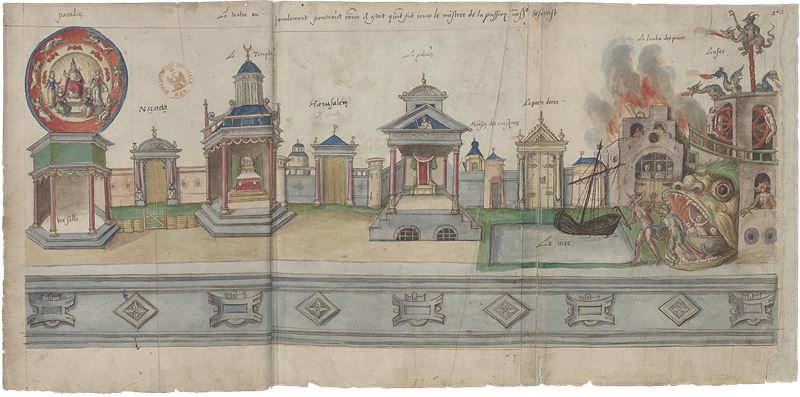 paradis
Le teatre ou hourdement pourtraict come il estoit quant fut joue le mistere de la passion
Le Temple
Le palais
Le limbe des peres
Enfer
Nazareth
Hierusalem
Maison des evesques
La porte doree
une salle
La mer